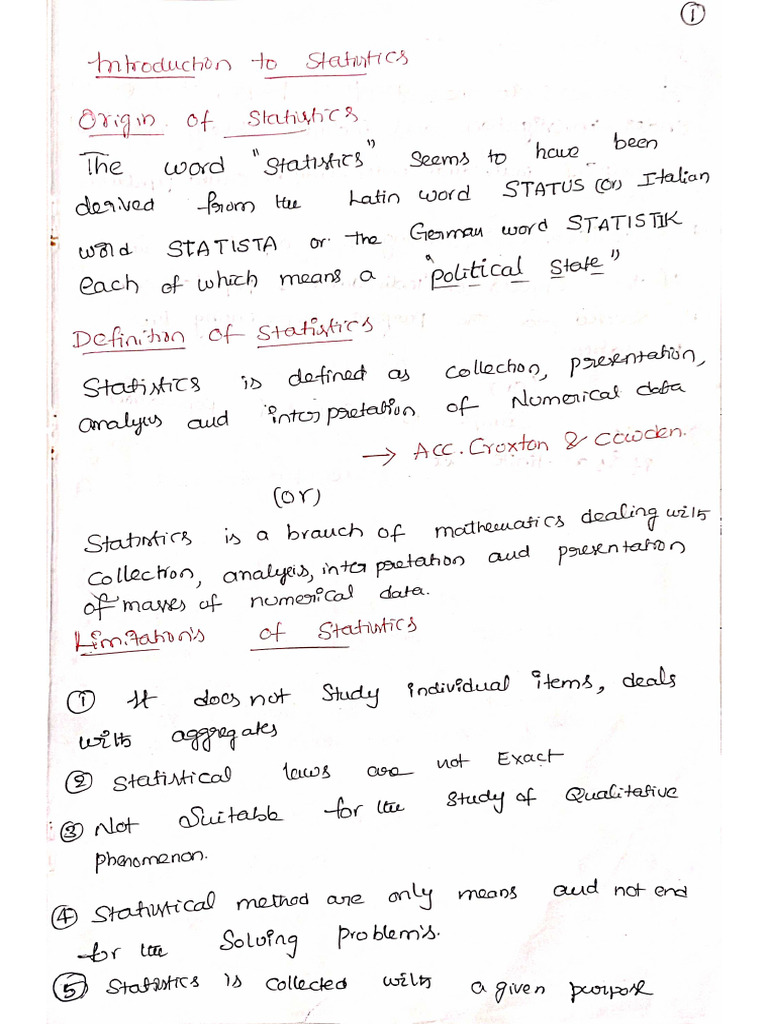 ①
Introduction to Statistics
Origin of Statistics
The word "Statistics" seems to have been
derived from the Latin word STATUS (or) Italian
word STATISTA or the German word STATISTIK
each of which means a "Political State"
Definition of Statistics
Statistics is defined as collection, presentation,
analysis and interpretation of Numerical data
→ Acc. Croxton & Cowden.
(or)
Statistics is a branch of mathematics dealing with
collection, analysis, interpretation and presentation
of masses of numerical data.
Limitation's of Statistics
① It does not study individual items, deals
with aggregates
② Statistical laws are not Exact
③ Not Suitable for the study of Qualitative
phenomenon.
④ Statistical method are only means and not end
for the Solving Problem's.
⑤ Statistics is collected with a given purpose